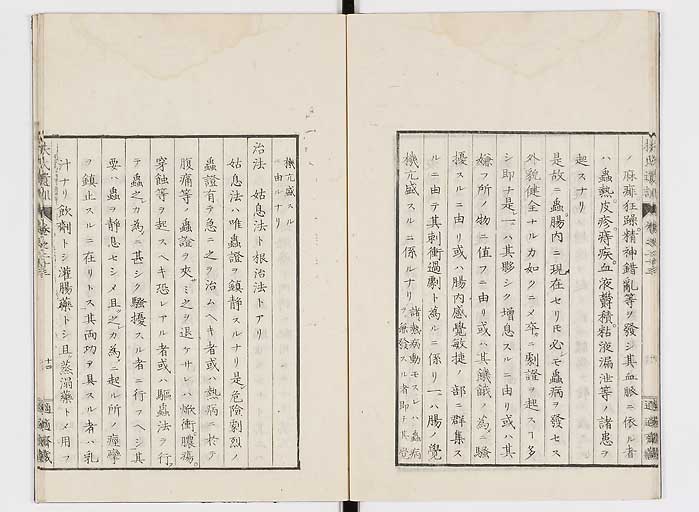 ノ麻痺狂躁精神錯亂等ヲ發シ其血脈ニ依ル者
ハ蟲熱皮疹痔疾血液欝積粘液漏泄等ノ諸患ヲ
起スナリ
是故ニ蟲腸内ニ現在セリモ必モ蟲病ヲ發セス
外貌健全ナルカ如クニメ卒ニ劇證ヲ起ス丁多
シ即ナ是一ハ其夥シク增息スルニ由リ或ハ其
嫌フ所ノ物ニ値フニ由リ或ハ其饑餓ノ為ニ騒
擾スルニ由リ或ハ腸内感覺敏捷ノ部ニ群集ス
ルニ由テ其刺衝過劇ト為ルニ係リ一ハ腸ノ覺
機亢盛スルニ係ルナリ
諸熱病動モスレハ蟲病
ヲ兼發スル者即チ其覺
機亢盛スル
ニ由ルナリ
治法 姑息法ト根治法トアリ
姑息法ハ唯蟲證ヲ鎮靜スルナリ是危險劇烈ノ
蟲證有テ急ニ之ヲ治ムヘキ者或ハ熱病ニ於テ
腹痛等ノ蟲證ヲ夾ミ之ヲ退ケサレハ焮衝膿瘍
穿蝕等ヲ起スヘキ恐レアル者或ハ驅蟲法ヲ行
テ蟲之カ為ニ甚シク騒擾スル者ニ行フヘシ其
要ハ蟲ヲ靜息セシメ且之カ為ニ起ル所ノ痙攣
ヲ鎮止スルニ在リトス其両功ヲ具スル者ハ乳
汁ナリ飲劑トシ灌腸藥トシ且蒸溻藥トメ用フ
十四
適適齋藏